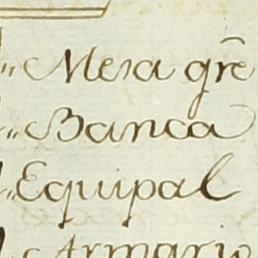 " Mesa grẽ
" Banca
" Equipal
" Armario